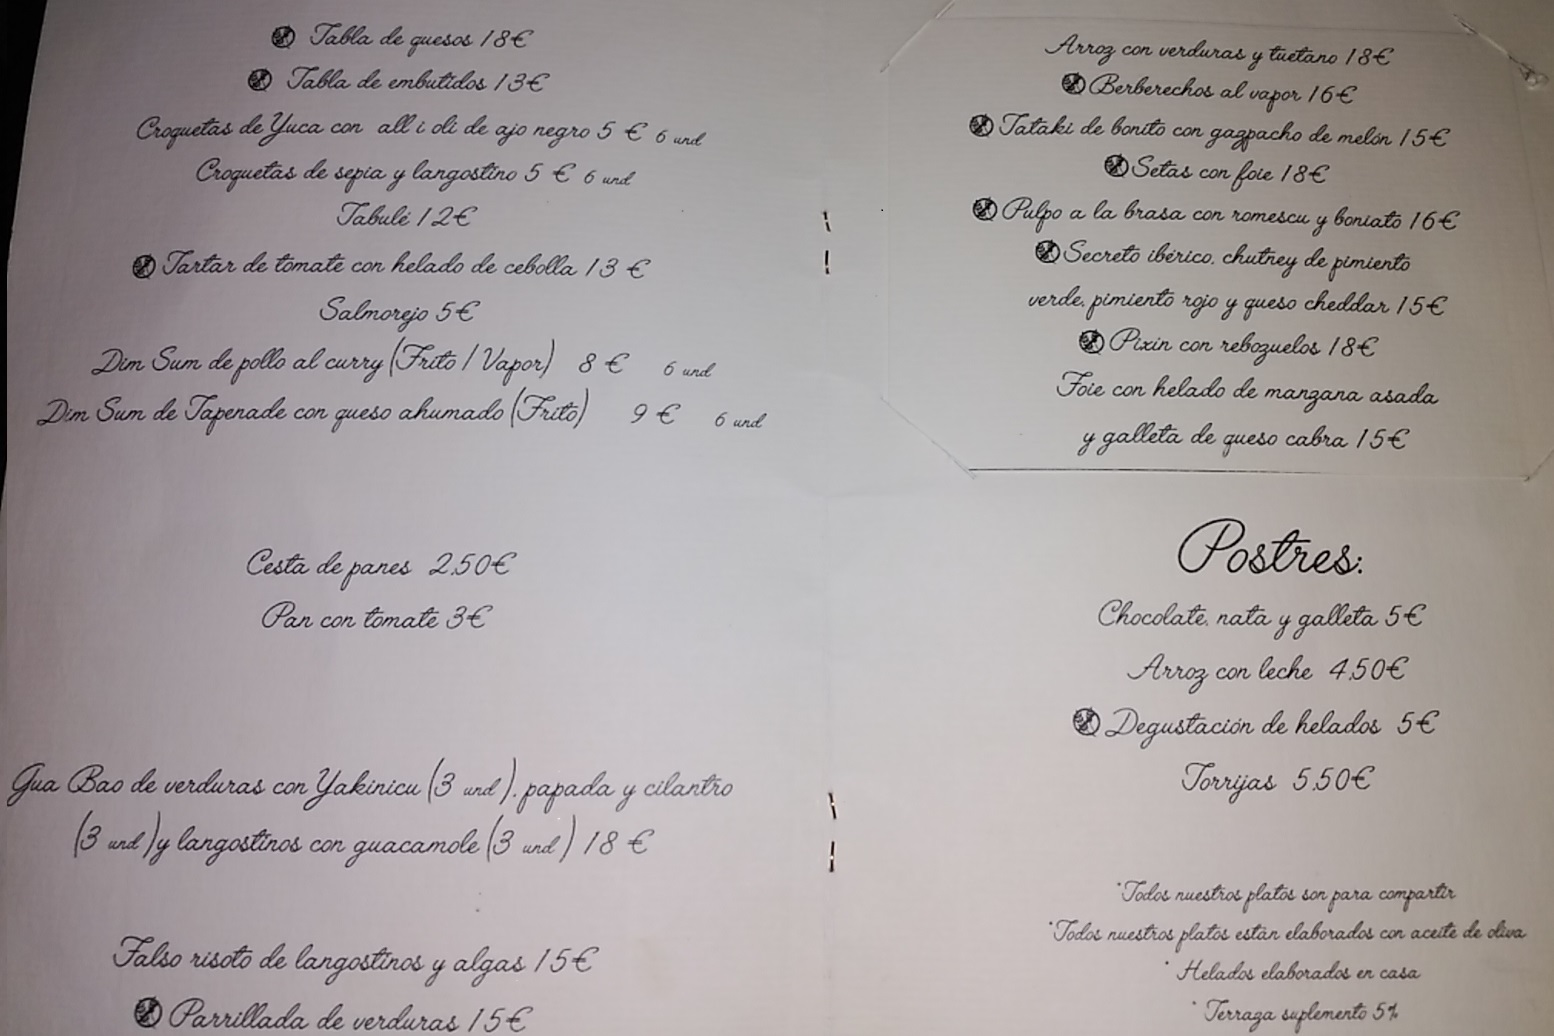 Tabla de quesos 18€
Tabla de embutidos 13€
Croquetas de Yuca con all i oli de ajo negro 5 € 6 und
Croquetas de sepia y langostino 5 € 6 und
Tabulé 12€
Tartar de tomate con helado de cebolla 13 €
Salmorejo 5€
Dim Sum de pollo al curry (Frito / Vapor) 8 € 6 und
Dim Sum de Tapenade con queso ahumado (Frito) 9 € 6 und
Cesta de panes 2,50€
Pan con tomate 3€
Gua Bao de verduras con Yakinicu (3 und), papada y cilantro
(3 und) y langostinos con guacamole (3 und) 18 €
Falso risoto de langostinos y algas 15€
Parrillada de verduras 15€
Arroz con verduras y tuetano 18€
Berberechos al vapor 16€
Tataki de bonito con gazpacho de melón 15€
Setas con foie 18€
Pulpo a la brasa con romescu y boniato 16€
Secreto ibérico, chutney de pimiento
verde, pimiento rojo y queso cheddar 15€
Pixin con rebozuelos 18€
Foie con helado de manzana asada
y galleta de queso cabra 15€
Postres:
Chocolate, nata y galleta 5€
Arroz con leche 4,50€
Degustación de helados 5€
Torrijas 5,50€
*Todos nuestros platos son para compartir
*Todos nuestros platos están elaborados con aceite de oliva
* Helados elaborados en casa
* Terraza suplemento 5%